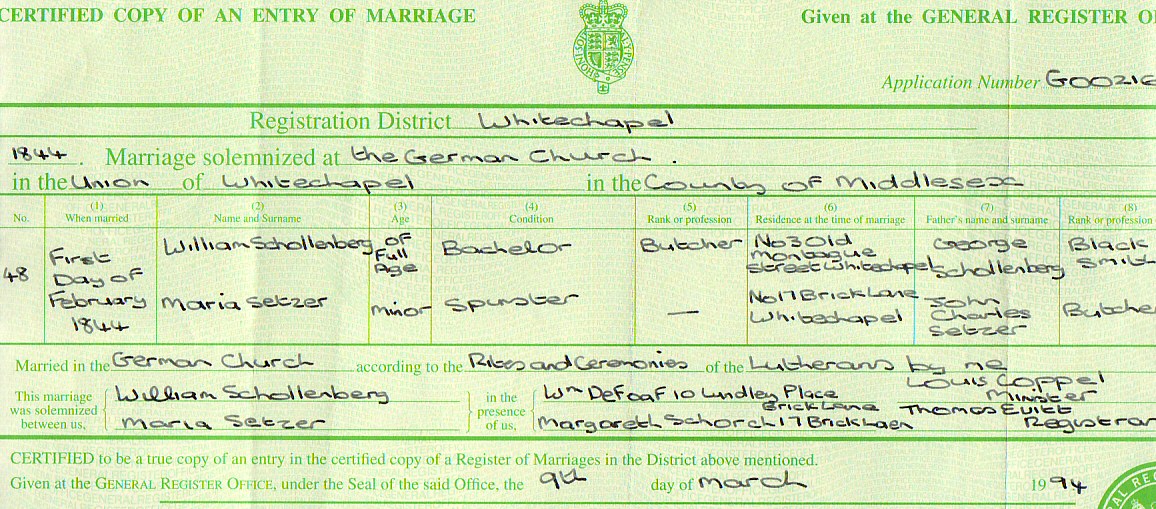 CERTIFIED COPY OF AN ENTRY OF MARRIAGE Given at the GENERAL REGISTER
Application Number G00216
Registration District Whitechapel
1844. Marriage solemnized at the German Church.
in the Union of Whitechapel in the County of Middlesex
No. (1) When married (2) Name and Surname (3) Age (4) Condition (5) Rank or profession (6) Residence at the time of marriage (7) Father's name and surname (8) Rank or profession
48 First Day of February 1844 William Schollenberg of Full Age Bachelor Butcher No 3 Old Montague Street Whitechapel George Schollenberg Black Smith
Maria Setzer minor Spinster — No 17 Brick Lane Whitechapel John Charles Setzer Butcher
Married in the German Church according to the Rites and Ceremonies of the Lutherans by me
Louis Cappel Minister
This marriage was solemnized between us, William Schollenberg in the presence of us, Wm DeFoaF 10 Lindley Place Brick Lane Thomas Evitt Registrar
Maria Setzer Margareth Schorch 17 Brick Laen
CERTIFIED to be a true copy of an entry in the certified copy of a Register of Marriages in the District above mentioned.
Given at the GENERAL REGISTER OFFICE, under the Seal of the said Office, the 9th day of March 1994